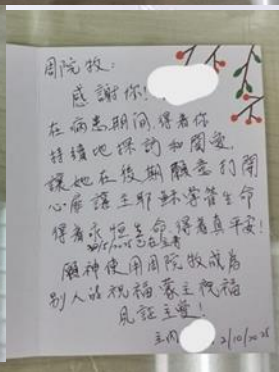 周院牧:
感謝你!
在病患期间,得着你
持續地探訪和関愛,
讓她在後期願意打開
心扉讓主耶穌掌管生命
得着永恒生命,得着真平安!
願神使用周院牧成為
別人的祝福,蒙主祝福
見証主愛!
主内
2/10/2025